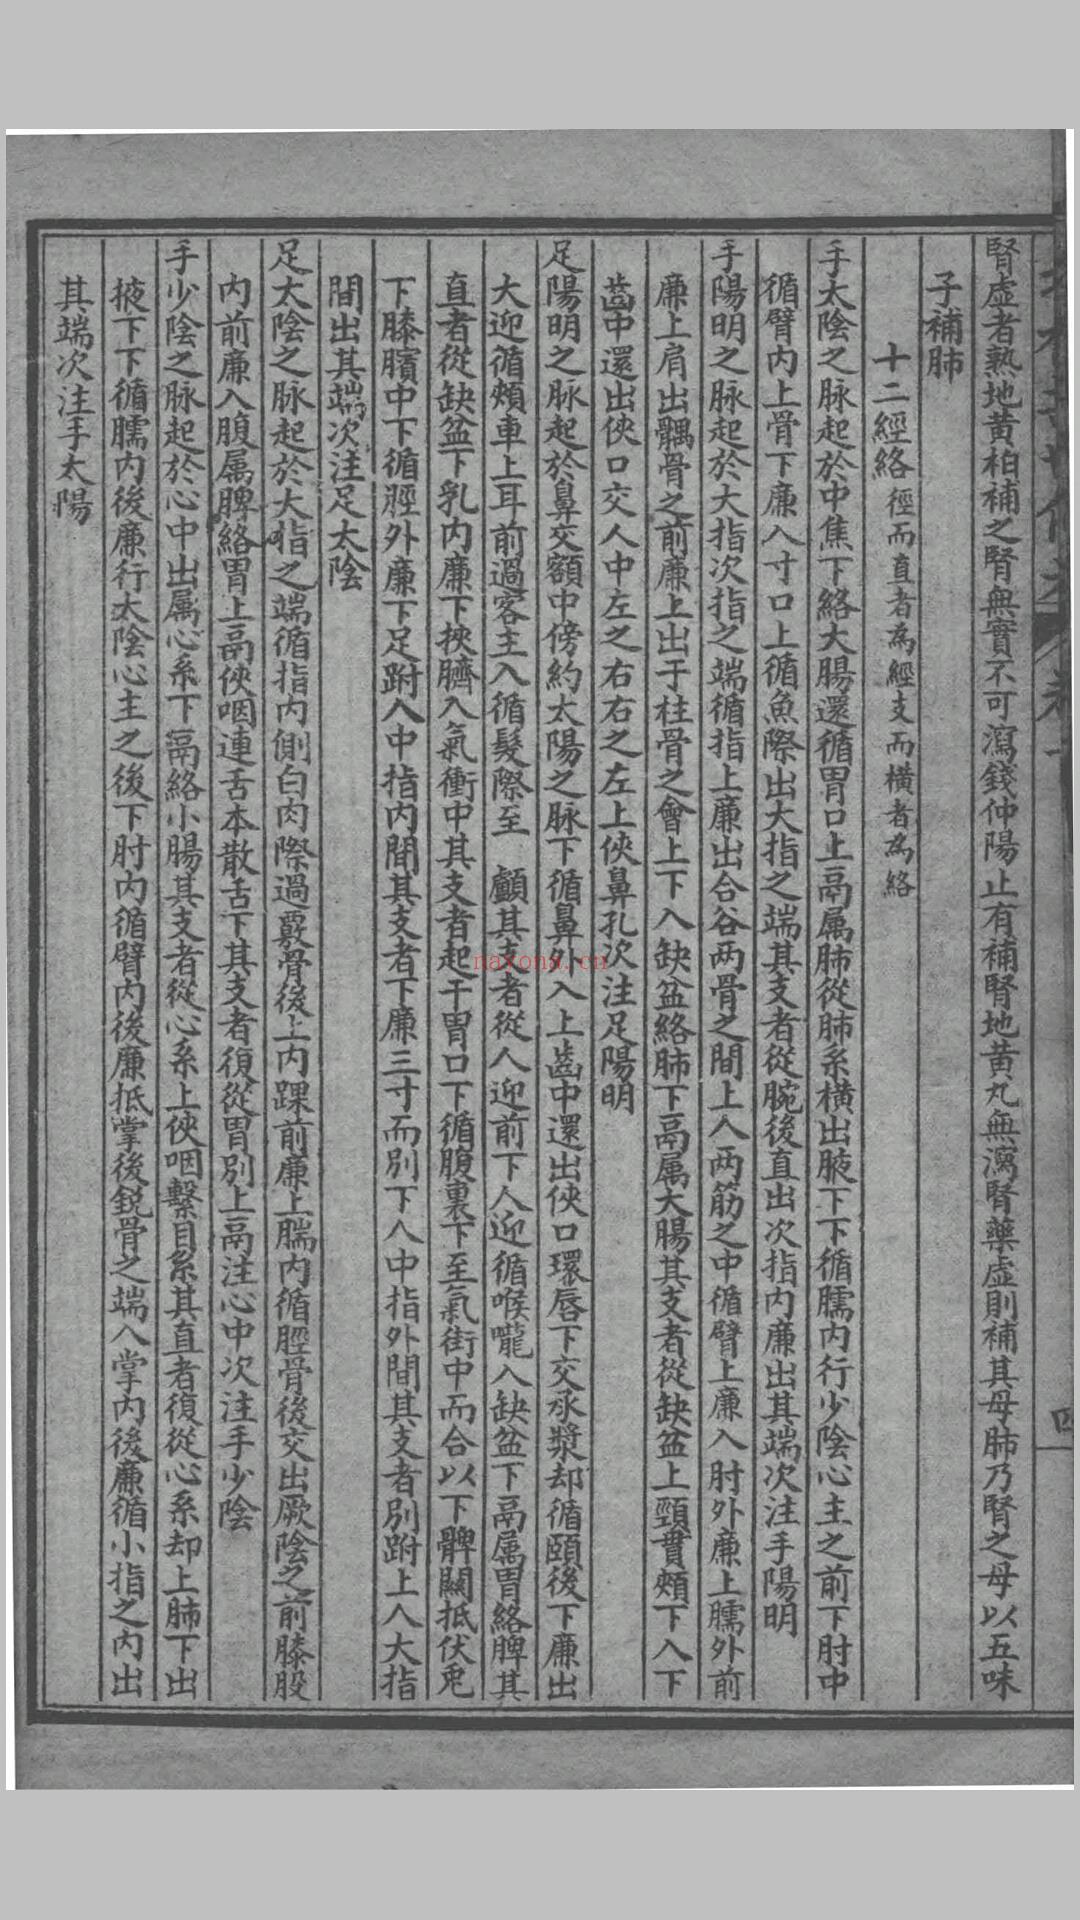 腎虛者熟地黄柏補之腎無實不可瀉錢仲陽止有補腎地黄丸無瀉腎藥虛則補其母肺乃腎之母以五味
子補肺
十二經絡徑而直者為經支而橫者為絡
手太陰之脉起於中焦下絡大腸還循胃口上鬲属肺從肺系橫出腋下下循臑内行少陰心主之前下肘中
循臂内上骨下廉入寸口上循魚際出大指之端其支者從腕後直出次指内廉出其端次注手陽明
手陽明之脉起於大指次指之端循指上廉出合谷两骨之間上入两筋之中循臂上廉入肘外廉上臑外前
廉上肩出髃骨之前廉上出于柱骨之會上下入缺盆絡肺下鬲属大腸其支者從缺盆上頸貫頰下入下
齒中還出俠口交人中左之右右之左上俠鼻孔次注足陽明
足陽明之脉起於鼻交頞中傍約太陽之脉下循鼻外入上齒中還出俠口環唇下交承漿却循頤後下廉出
大迎循頰車上耳前過客主入循髮際至 顱其支者從人迎前下人迎循喉嚨入缺盆下鬲属胃絡脾其
直者從缺盆下乳内廉下挾臍入氣衝中其支者起于胃口下循腹裏下至氣街中而合以下髀關抵伏兎
下膝臏中下循脛外廉下足跗入中指内間其支者下廉三寸而别下入中指外間其支者别跗上入大指
間出其端次注足太陰
足太陰之脉起於大指之端循指内側白肉際過覈骨後上内踝前廉上腨内循脛骨後交出厥陰之前膝股
内前廉入腹属脾絡胃上鬲俠咽連舌本散舌下其支者復從胃别上鬲注心中次注手少陰
手少陰之脉起於心中出属心系下鬲絡小腸其支者從心系上俠咽繫目系其直者復從心系却上肺下出
掖下下循臑内後廉行太陰心主之後下肘内循臂内後廉抵掌後鋭骨之端入掌内後廉循小指之内出
其端次注手太陽
四
naxona.cn